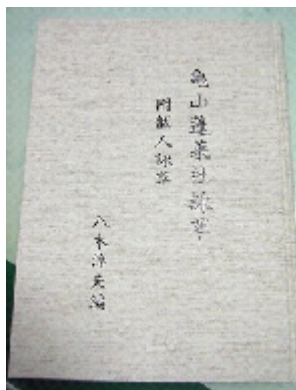 亀山蓬莱社詠草
附献人詠草
八木淳英編